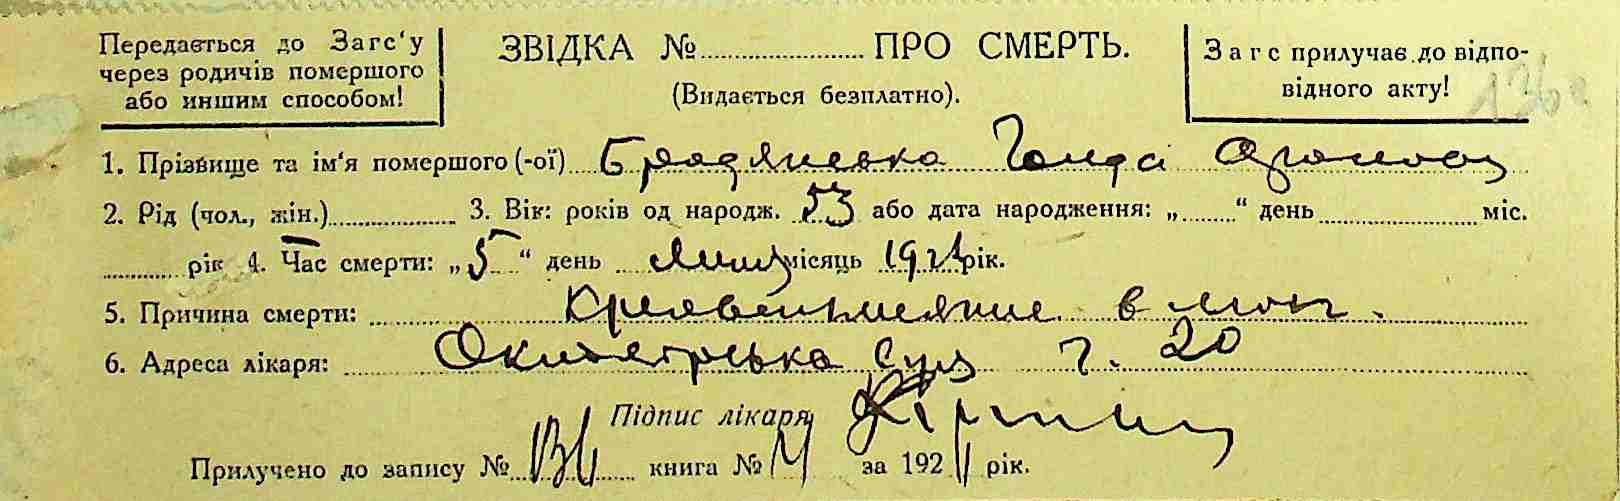 Передається до Загс'у
через родичів помершого
або иншим способом!
ЗВІДКА № ПРО СМЕРТЬ.
(Видається безплатно).
Загс прилучає до відпо-
відного акту!
1. Прізвище та ім'я помершого (-ої) Гольда
2. Рід (чол., жін.) 3. Вік: років од народж. 53 або дата народження: „ “ день міс.
рік 4. Час смерти: „5“ день місяць рік.
5. Причина смерти: Кровоизлияние в мозг.
6. Адреса лікаря: ч. 20
Підпис лікаря
Прилучено до запису № книга № за 192 рік.